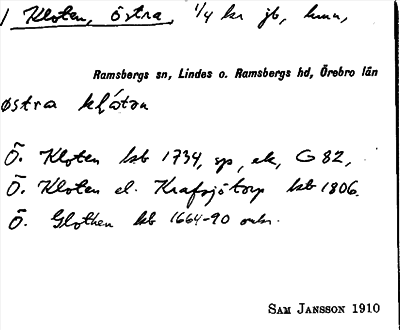 1 Kloten, Östra, 1/4 kr jb, kmn,
Ramsbergs sn, Lindes o. Ramsbergs hd, Örebro län
østra klåtan
Ö. Kloten kb 1734, sp, ek, G 82,
Ö. Kloten el. Krafsjötorp kb 1806.
Ö. Glothen kb 1664-90
SAM JANSSON 1910